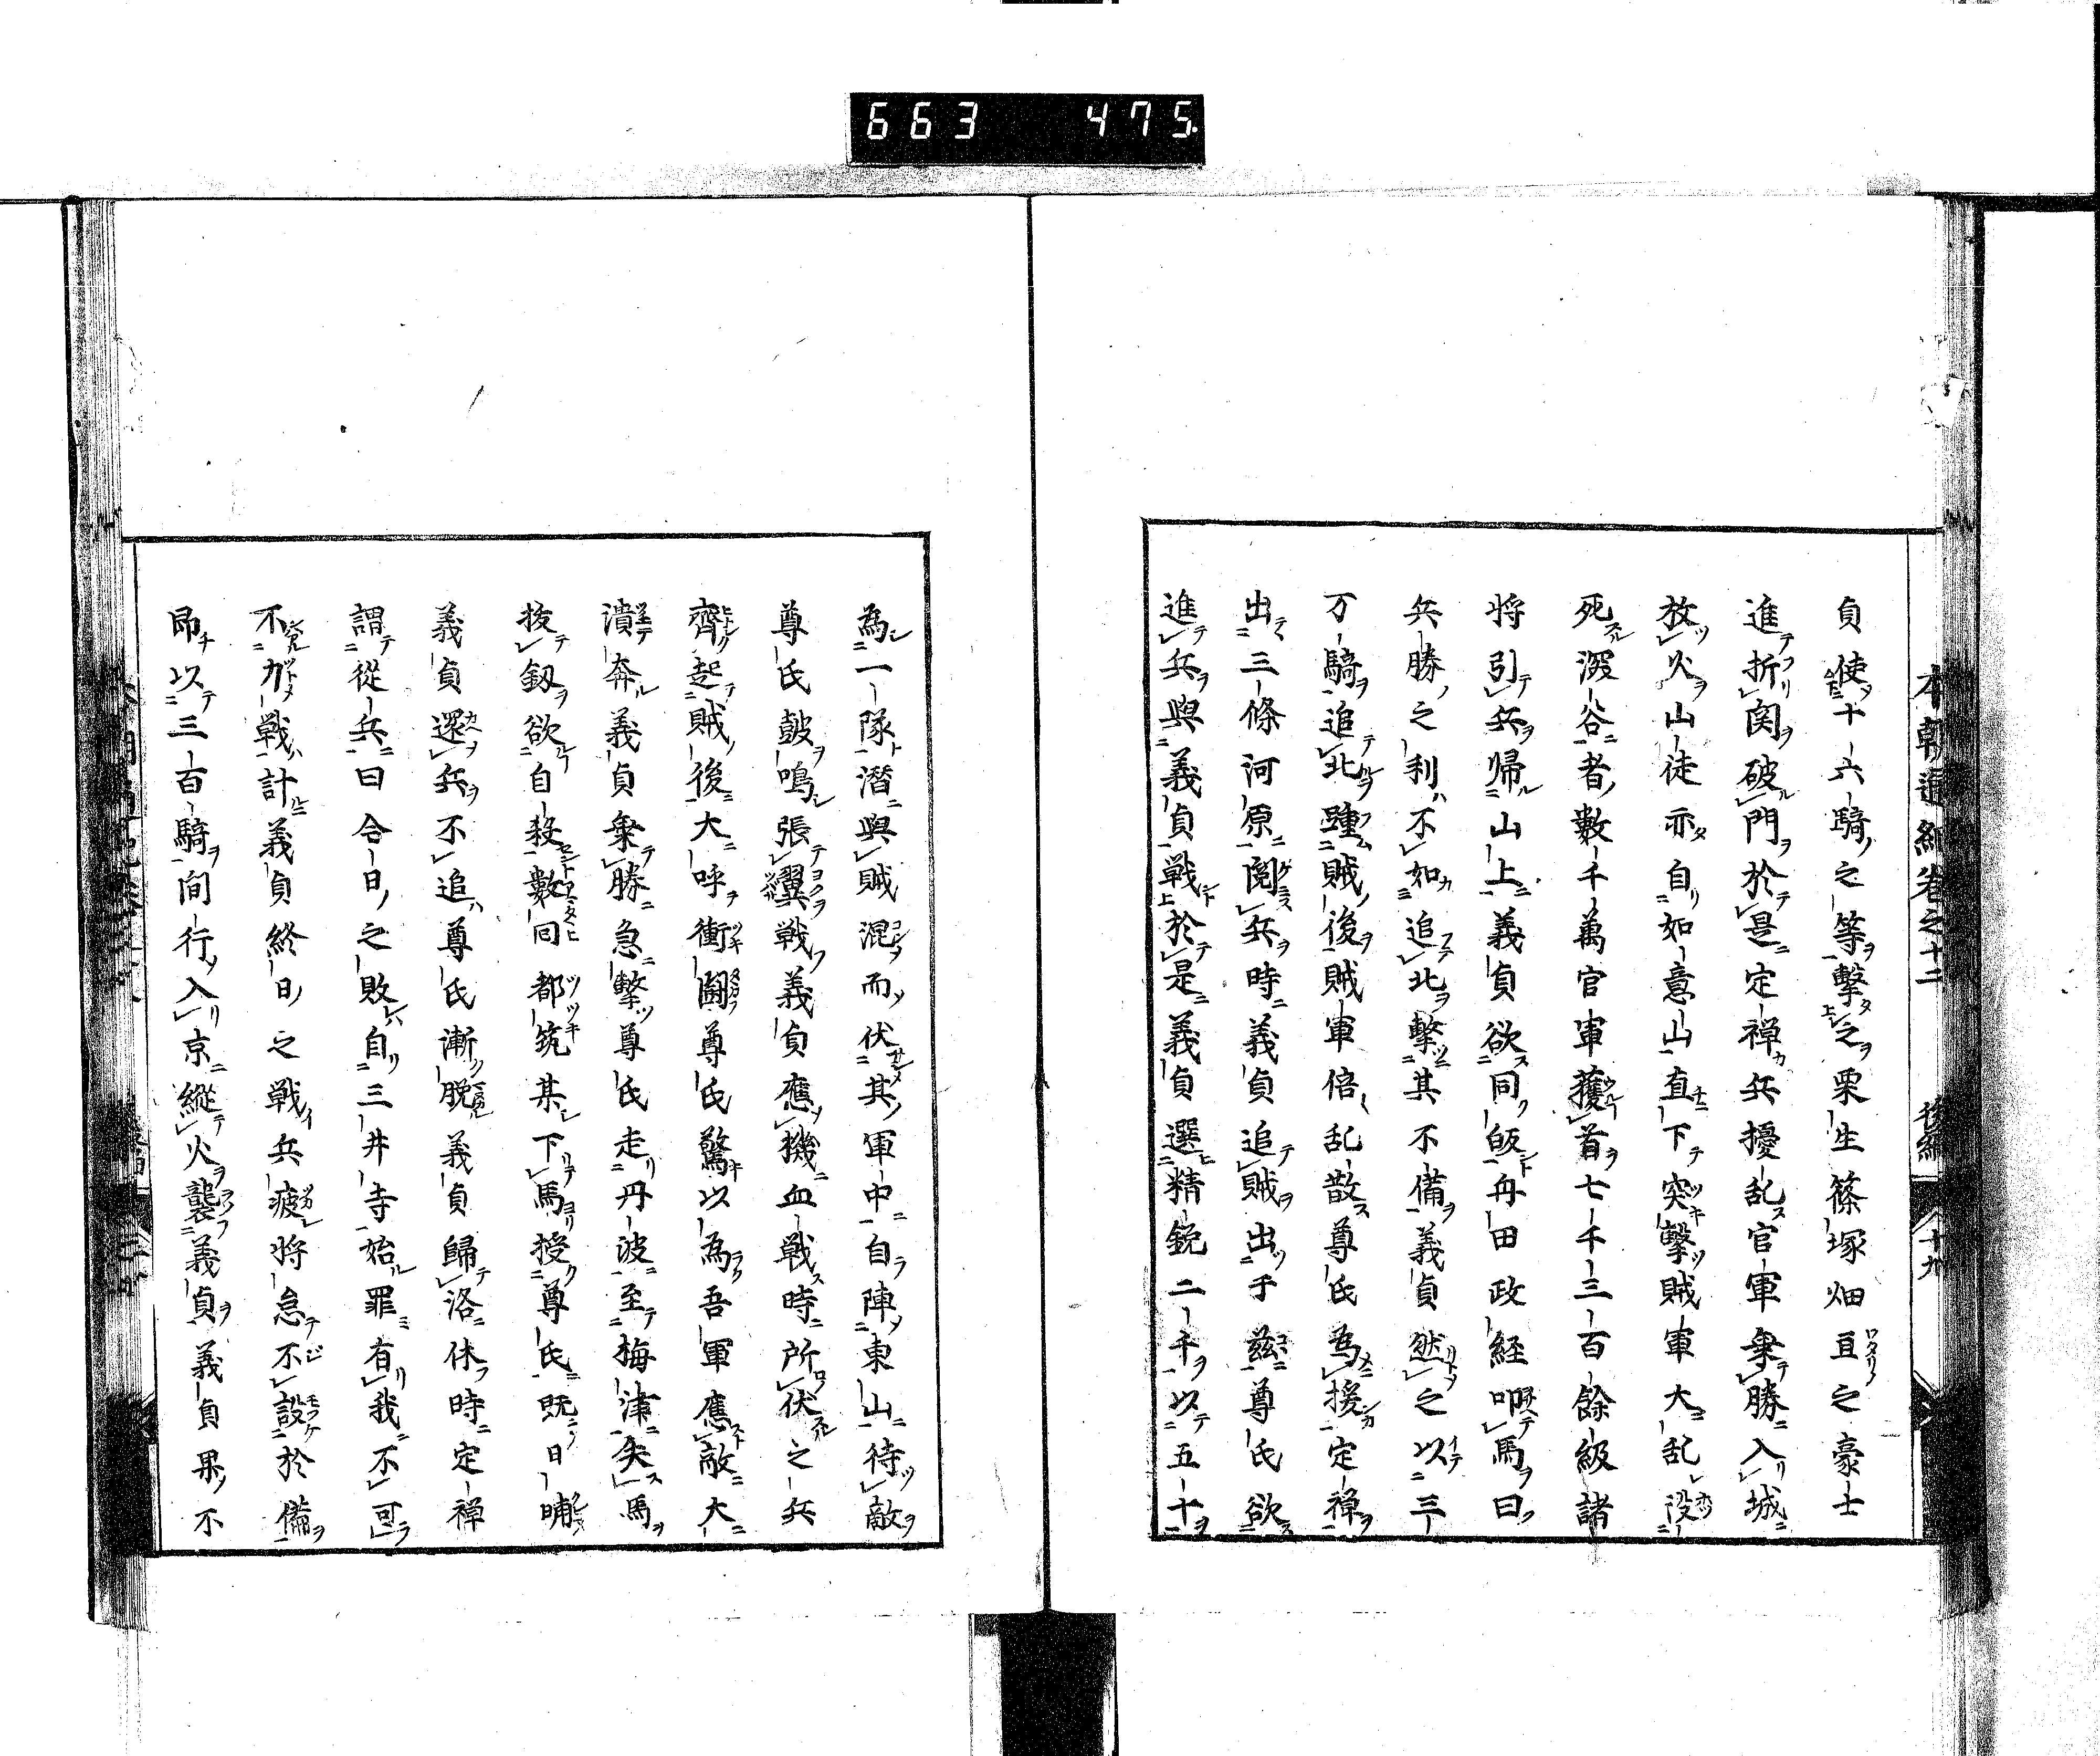 663 475.
本朝通紀卷之十二 後編 十九
貞使十六騎之等擊之栗生篠塚畑亘之豪士
進折関破門於是定禅兵擾乱官軍乗勝入城
放火山徒亦自如意山直下突擊賊軍大乱没
死深谷者數千萬官軍獲首七千三百餘級諸
将引兵帰山上義貞欲同皈舟田政経啣馬曰
兵勝之利不如追北擊其不備義貞然之以三
万騎追北踵賊後賊軍倍乱散尊氏為援定禅
出三條河原閲兵時義貞追賊出于茲尊氏欲
進兵與義貞戦於是義貞選精鋭二千以五十
為一隊潜與賊混而伏其軍中自陣東山待敵
尊氏鼓鳴張翼戦義貞應機血戦時所伏之兵
齊起賊後大呼衝圖尊氏驚以為吾軍應敵大
潰奔義貞乗勝急擊尊氏走丹波至梅津失馬
抜釼欲自殺數同都筑某下馬授尊氏既日晡
義貞還兵不追尊氏漸脱義貞歸洛休時定禅
謂從兵曰今日之敗自三井寺始罪有我不可
不力戦計義貞終日之戦兵疲将怠不設於備
即以三百騎間行入京縱火襲義貞義貞果不